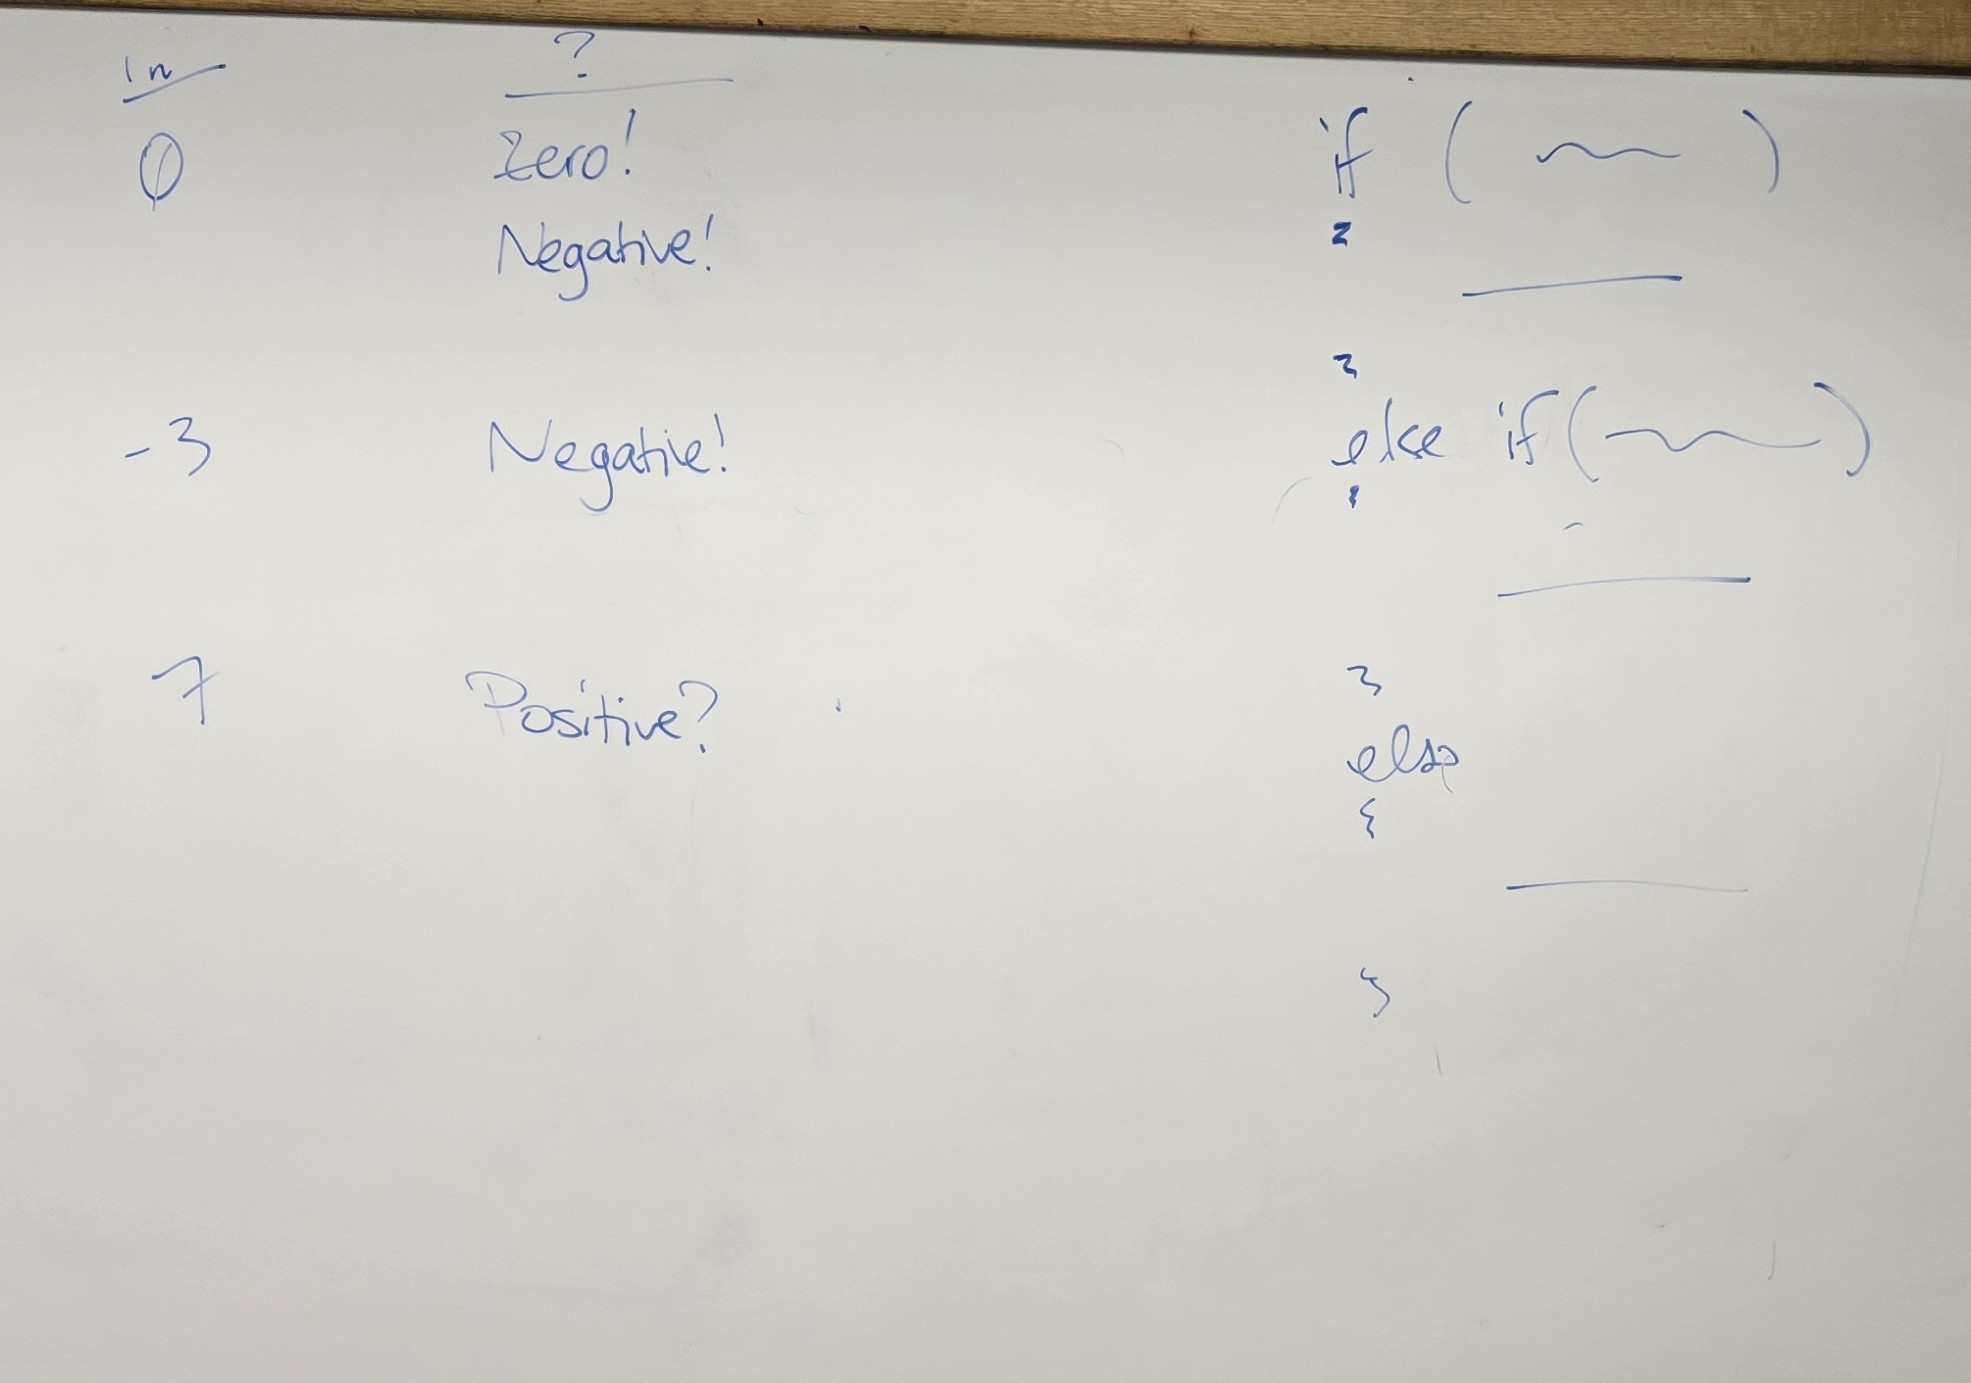 in ?
0 Zero!
Negative!
-3 Negative!
7 Positive?
if ( )
{
}
else if ( )
{
}
else
{
}